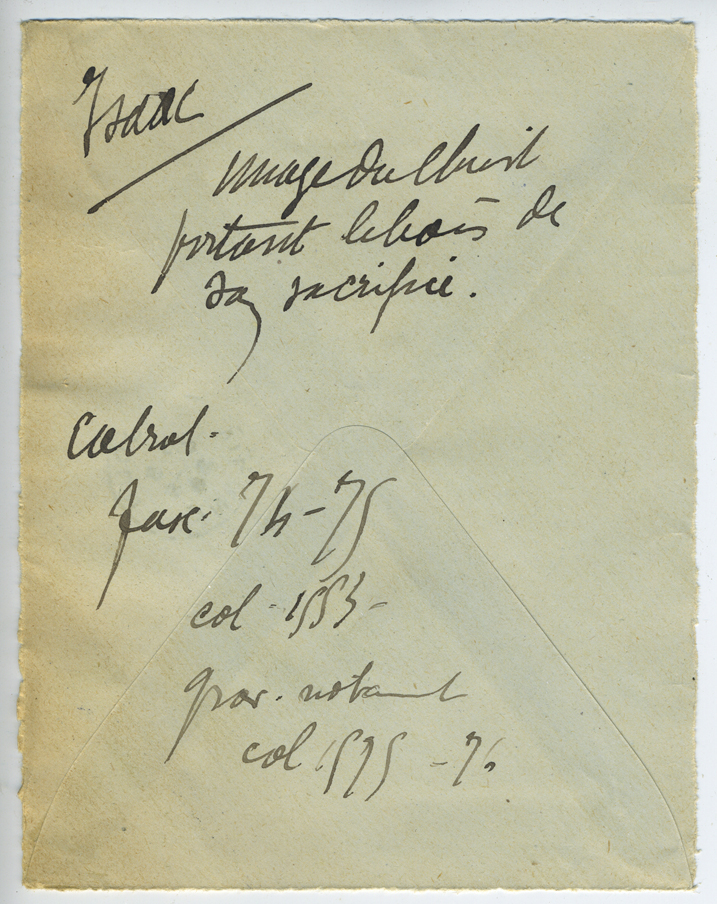 Isaac
image du Christ
portant le bois de
sa sacrifice.
Cabrol.
fasc. 74-75
col - 1553-
grav. notamt
col 1575 - 76